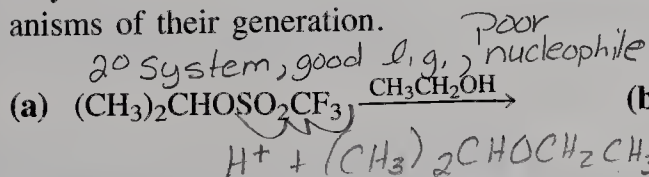 anisms of their generation.
2° system, good l.g., poor nucleophile
(a) (CH₃)₂CHOSO₂CF₃ CH₃CH₂OH → (b
H⁺ + (CH₃)₂CHOCH₂CH₃